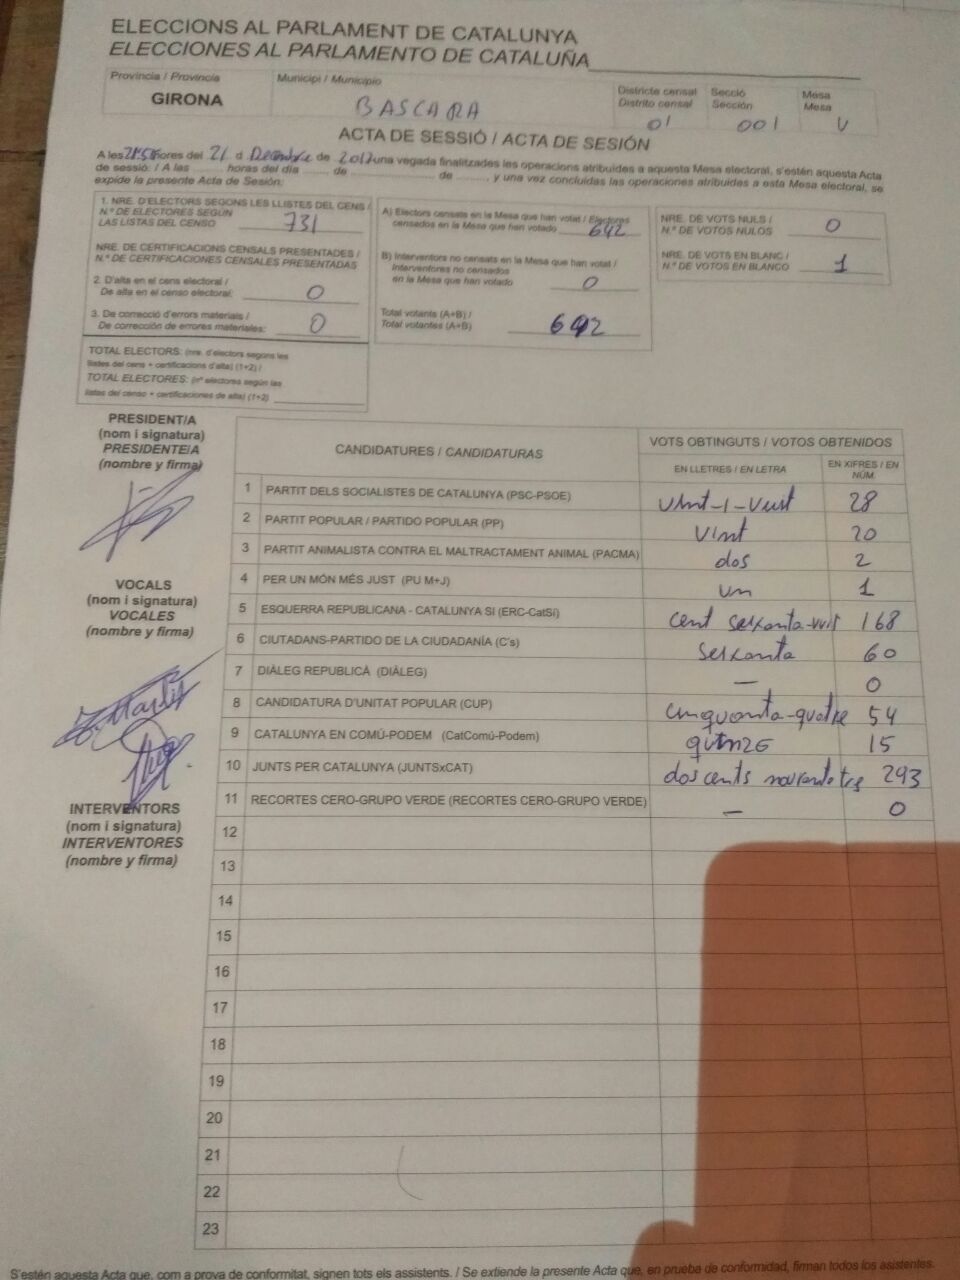 ELECCIONS AL PARLAMENT DE CATALUNYA
ELECCIONES AL PARLAMENTO DE CATALUÑA
Provincia / Provincia
GIRONA
Municipi / Municipio
BASCARA
Districte censal
Distrito censal
01
Secció
Sección
001
Mesa
Mesa
U
ACTA DE SESSIÓ / ACTA DE SESIÓN
A les hores del 21 d Decembre de 2017 una vegada finalitzades les operacions atribuides a aquesta Mesa electoral, s'estén aquesta Acta
de sessió: / A las ........ horas del día ........ de ........ de ........, y una vez concluidas las operaciones atribuidas a esta Mesa electoral, se
expide la presente Acta de Sesión:
1. NRE. D'ELECTORS SEGONS LES LLISTES DEL CENS /
N.º DE ELECTORES SEGÚN
LAS LISTAS DEL CENSO 731
NRE. DE CERTIFICACIONS CENSALS PRESENTADES /
N.º DE CERTIFICACIONES CENSALES PRESENTADAS
2. D'alta en el cens electoral /
De alta en el censo electoral: 0
3. De correcció d'errors materials /
De corrección de errores materiales: 0
TOTAL ELECTORS: (nre. d'electors segons les
llistes del cens + certificacions d'alta) (1+2) /
TOTAL ELECTORES: (nº electores según las
listas del censo + certificaciones de alta) (1+2)
A) Electors censats en la Mesa que han votat / Electores
censados en la Mesa que han votado 642
B) Interventors no censats en la Mesa que han votat /
Interventores no censados
en la Mesa que han votado 0
Total votants (A+B) /
Total votantes (A+B) 642
NRE. DE VOTS NULS /
N.º DE VOTOS NULOS 0
NRE. DE VOTS EN BLANC /
N.º DE VOTOS EN BLANCO 1
PRESIDENT/A
(nom i signatura)
PRESIDENTE/A
(nombre y firma)
VOCALS
(nom i signatura)
VOCALES
(nombre y firma)
INTERVENTORS
(nom i signatura)
INTERVENTORES
(nombre y firma)
CANDIDATURES / CANDIDATURAS
VOTS OBTINGUTS / VOTOS OBTENIDOS
EN LLETRES / EN LETRA
EN XIFRES / EN NÚM.
1 PARTIT DELS SOCIALISTES DE CATALUNYA (PSC-PSOE) Vint-i-Vuit 28
2 PARTIT POPULAR / PARTIDO POPULAR (PP) Vint 20
3 PARTIT ANIMALISTA CONTRA EL MALTRACTAMENT ANIMAL (PACMA) dos 2
4 PER UN MÓN MÉS JUST (PU M+J) un 1
5 ESQUERRA REPUBLICANA - CATALUNYA SI (ERC-CatSí) cent seixanta-vuit 168
6 CIUTADANS-PARTIDO DE LA CIUDADANÍA (C's) seixanta 60
7 DIÀLEG REPUBLICÀ (DIÀLEG) — 0
8 CANDIDATURA D'UNITAT POPULAR (CUP) cinquanta-quatre 54
9 CATALUNYA EN COMÚ-PODEM (CatComú-Podem) quinze 15
10 JUNTS PER CATALUNYA (JUNTSxCAT) dos cents noranta tres 293
11 RECORTES CERO-GRUPO VERDE (RECORTES CERO-GRUPO VERDE) — 0
12
13
14
15
16
17
18
19
20
21
22
23
S'estén aquesta Acta que, com a prova de conformitat, signen tots els assistents. / Se extiende la presente Acta que, en prueba de conformidad, firman todos los asistentes.